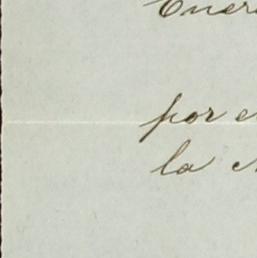 Ener
por e
la